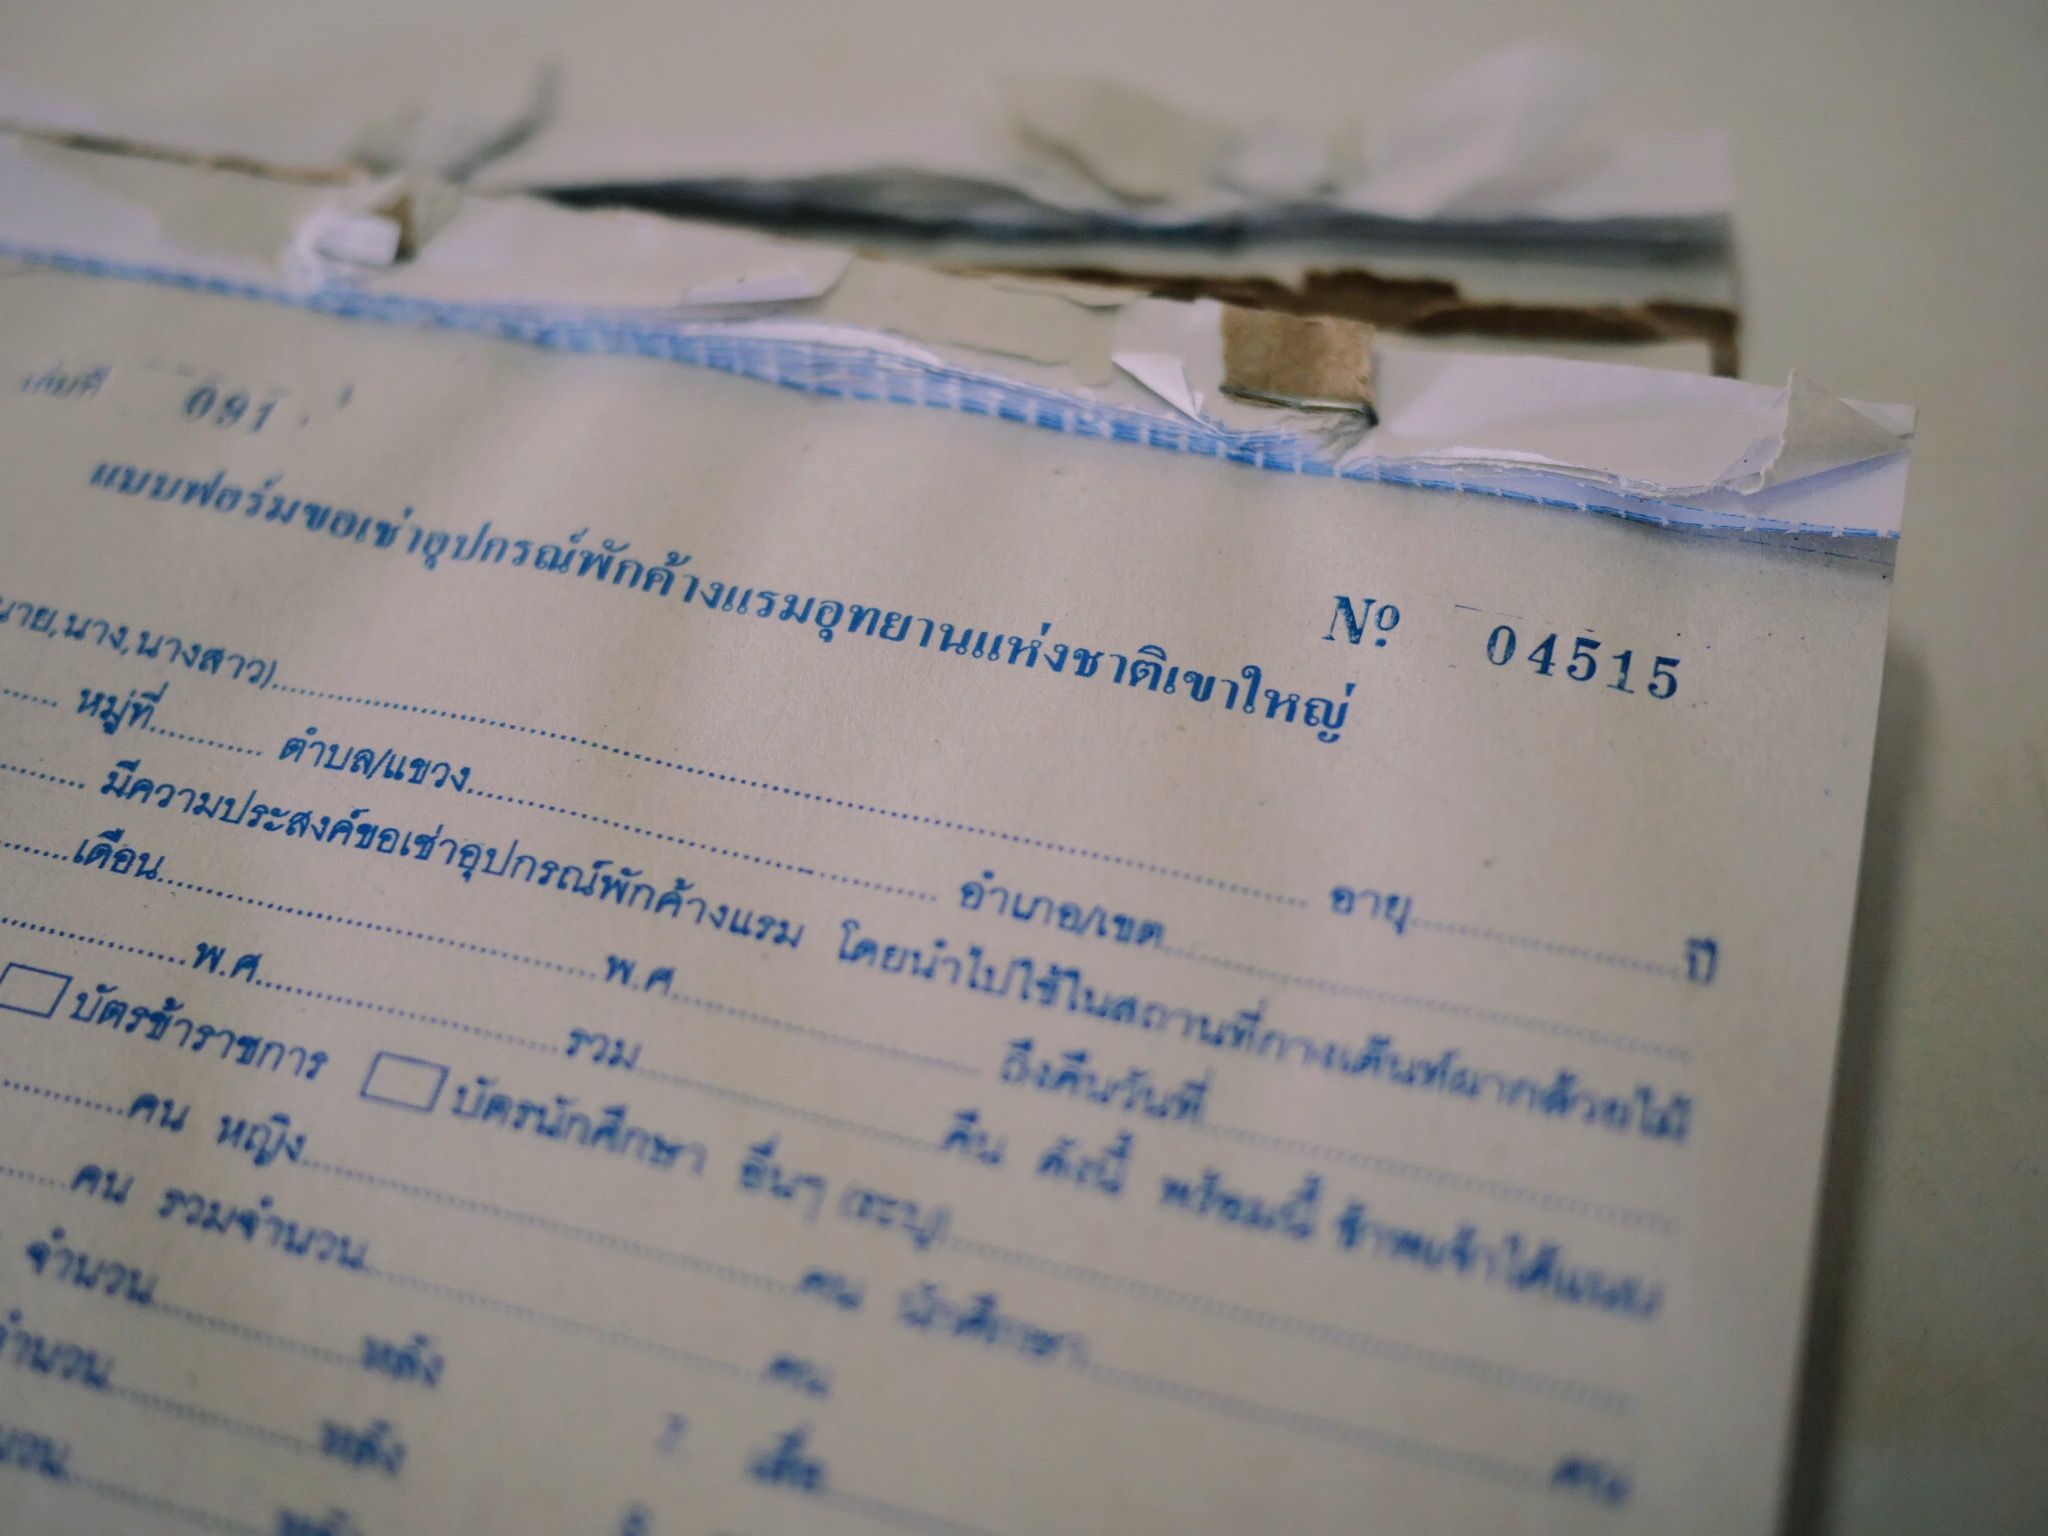 เล่มที่ 091
Nº 04515
แบบฟอร์มขอเช่าอุปกรณ์พักค้างแรมอุทยานแห่งชาติเขาใหญ่
นาย,นาง,นางสาว)........ อายุ........ปี
........ หมู่ที่........ ตำบล/แขวง........ อำเภอ/เขต........
........ มีความประสงค์ขอเช่าอุปกรณ์พักค้างแรม โดยนำไปใช้ในสถานที่กางเต็นท์ผากล้วยไม้
........เดือน........พ.ศ........ ถึงคืนวันที่........
........พ.ศ........รวม........คืน ดังนี้ พร้อมนี้ ข้าพเจ้าได้แสดง
☐ บัตรข้าราชการ ☐ บัตรนักศึกษา อื่นๆ (ระบุ)........
........คน หญิง........คน นักศึกษา........คน
........คน รวมจำนวน........คน
จำนวน........หลัง
จำนวน........หลัง